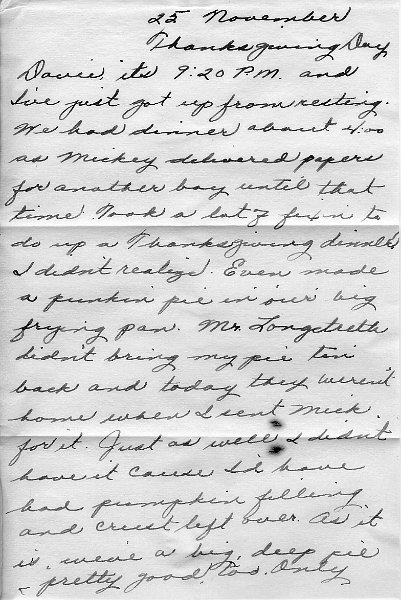 25 November
Thanksgiving Day
Davie, its 9:20 P.M. and
I've just got up from resting.
We had dinner about 4:00
as Mickey delivered papers
for another boy until that
time. Took a lot of fixn to
do up a Thanksgiving dinner
I didn't realize. Even made
a punkin pie in our big
frying pan. Mr. Longstreth
didn't bring my pie tin
back and today they weren't
home when I sent Mick
for it. Just as well I didn't
have it cause I'd have
had pumpkin filling
and crust left over. As it
is, we've a big, deep pie
& pretty good, too. Only